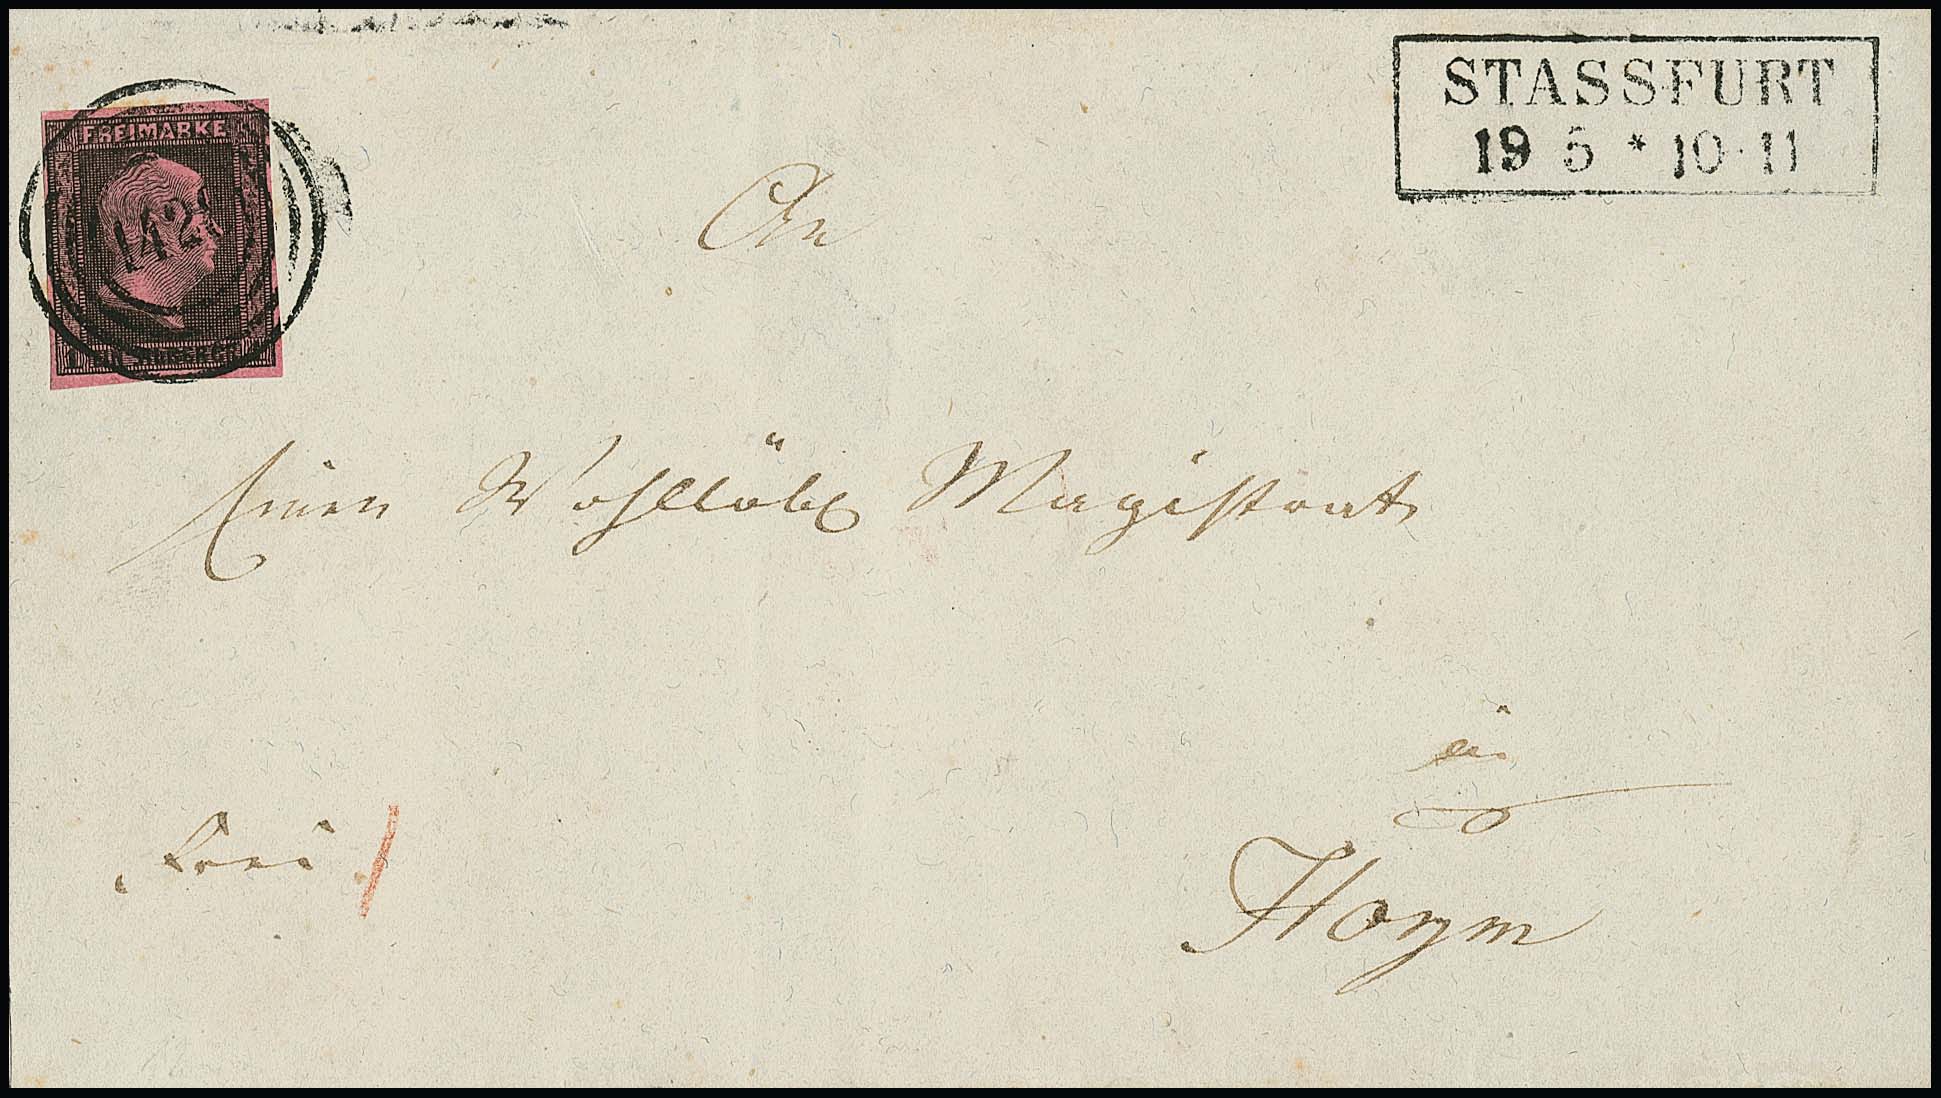 FREIMARKE
STASSFURT
19 5 * 10-11
An
Einen Wohllöbl Magistrat
zu
frei
Hoym